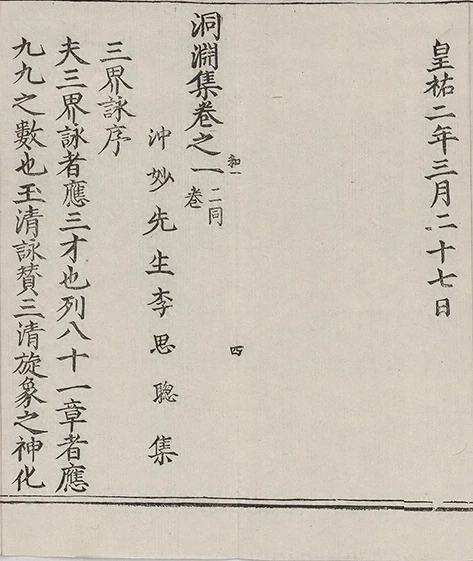 皇祐二年三月二十七日
洞淵集卷之一
二同卷
和一
四
沖妙先生李思聰集
三界詠序
夫三界詠者應三才也列八十一章者應
九九之數也玉清詠贊三清旋象之神化